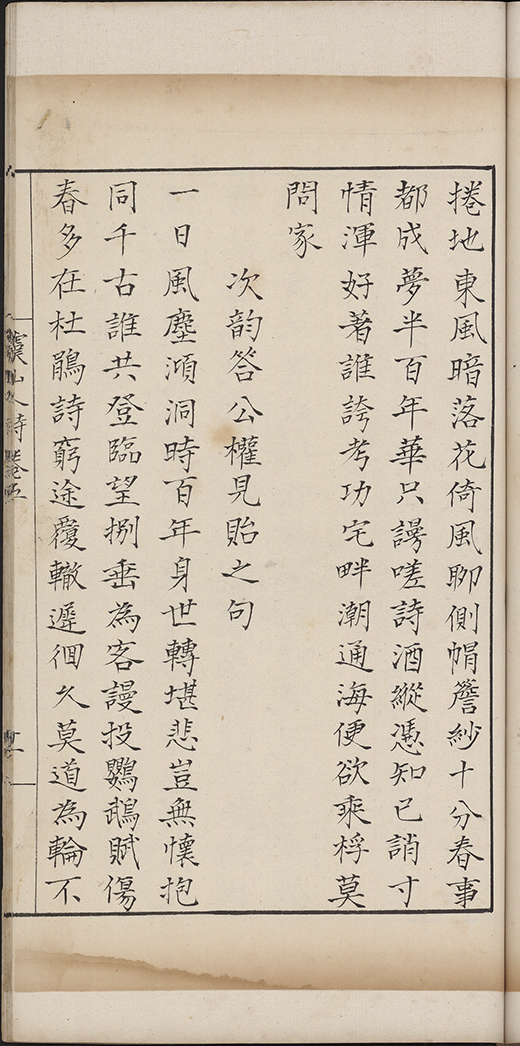 捲地東風暗落花倚風聊側帽簷紗十分春事
都成夢半百年華只謾嗟詩酒縱憑知己誚寸
情渾好著誰誇考功宅畔潮通海便欲乘桴莫
問家
次韵答公權見貽之句
一日風塵澒洞時百年身世轉堪悲豈無懷抱
同千古誰共登臨望捌垂為客謾投鸚鵡賦傷
春多在杜鵑詩窮途覆轍遲徊久莫道為輪不